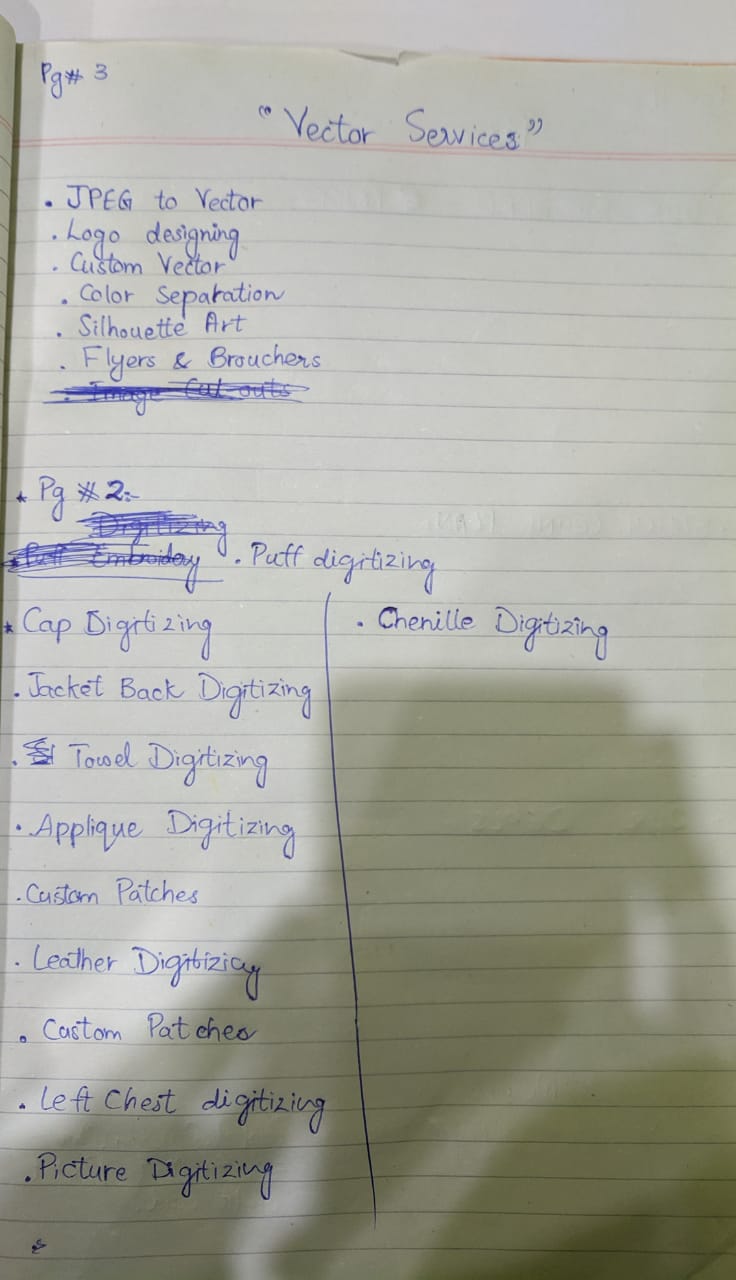 Pg# 3
"Vector Services"
. JPEG to Vector
. Logo designing
. Custom Vector
. Color Separation
. Silhouette Art
. Flyers & Brouchers
. Image Cut outs
* Pg # 2:-
Digitizing
* Puff Embroiday . Puff digitizing
* Cap Digitizing
. Jacket Back Digitizing
. Towel Digitizing
. Applique Digitizing
. Custom Patches
. Leather Digitizing
. Custom Patches
. Left Chest digitizing
. Picture Digitizing
. Chenille Digitizing